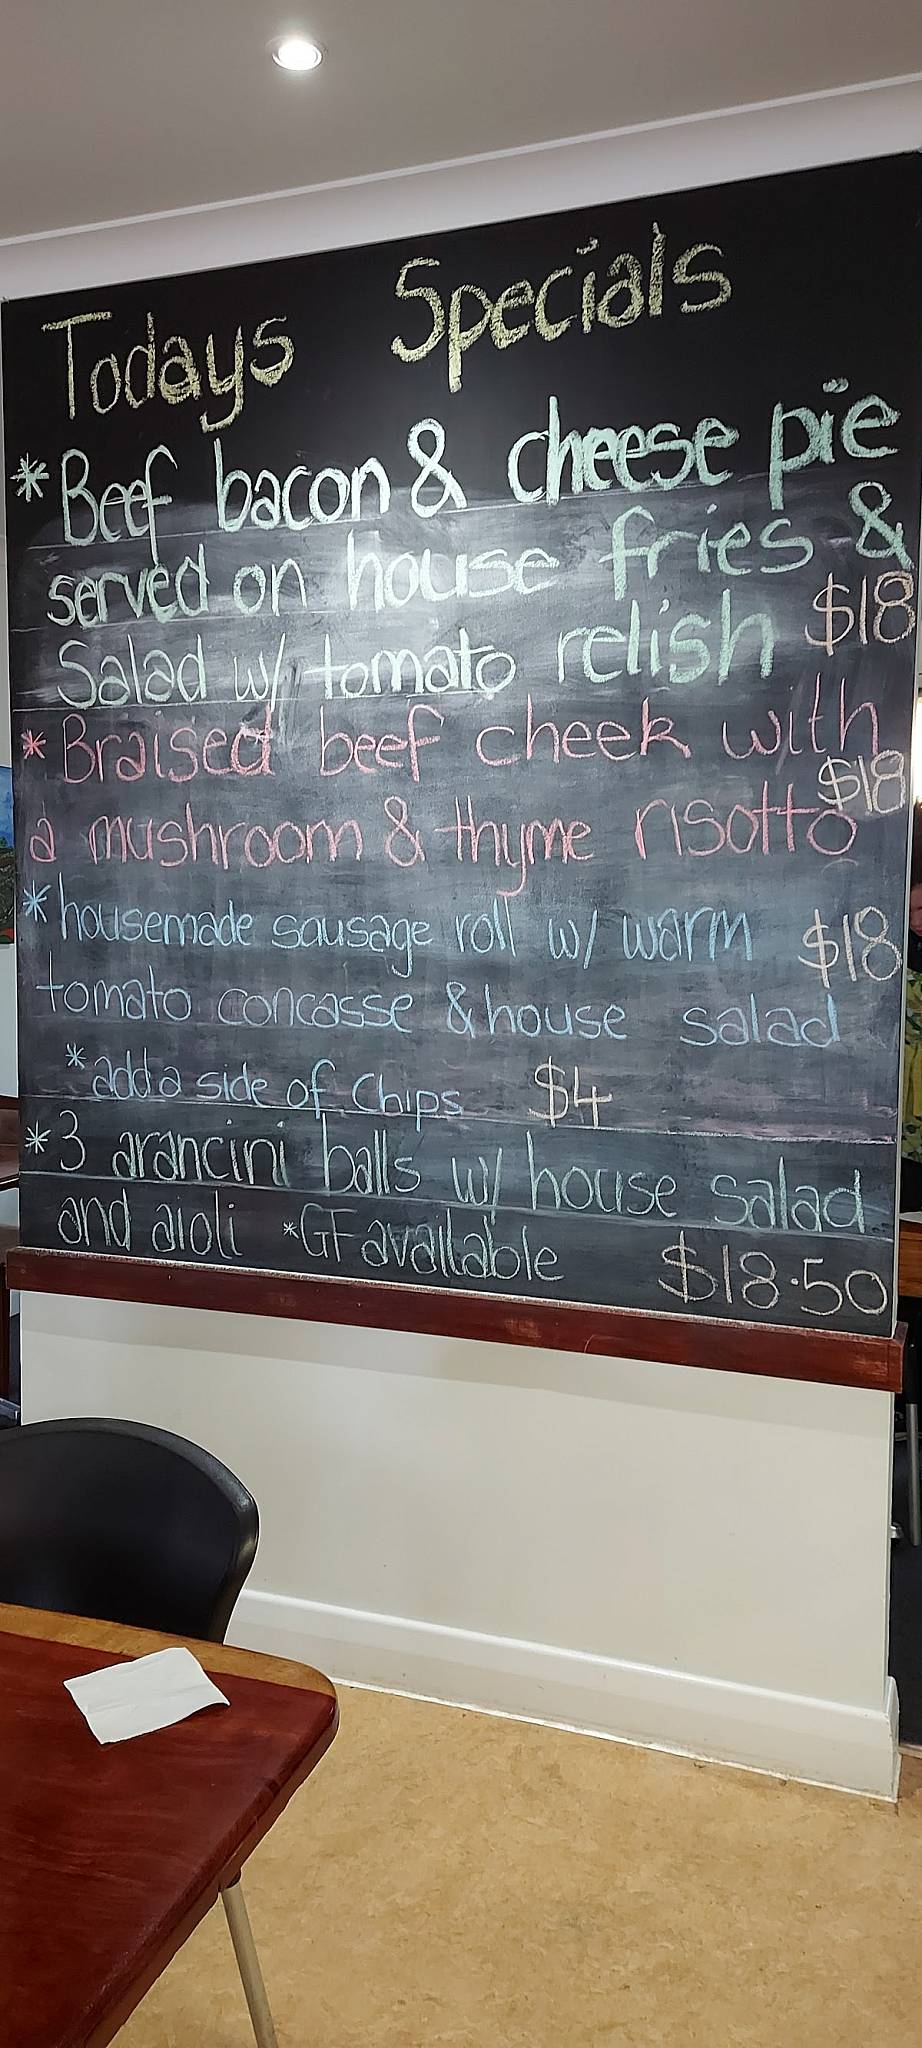 Todays Specials
*Beef bacon & cheese pie
served on house fries &
Salad w/ tomato relish $18
*Braised beef cheek with
a mushroom & thyme risotto $18
*housemade sausage roll w/ warm $18
tomato concasse & house salad
*add a side of Chips $4
*3 arancini balls w/ house salad
and aioli *GF available $18.50